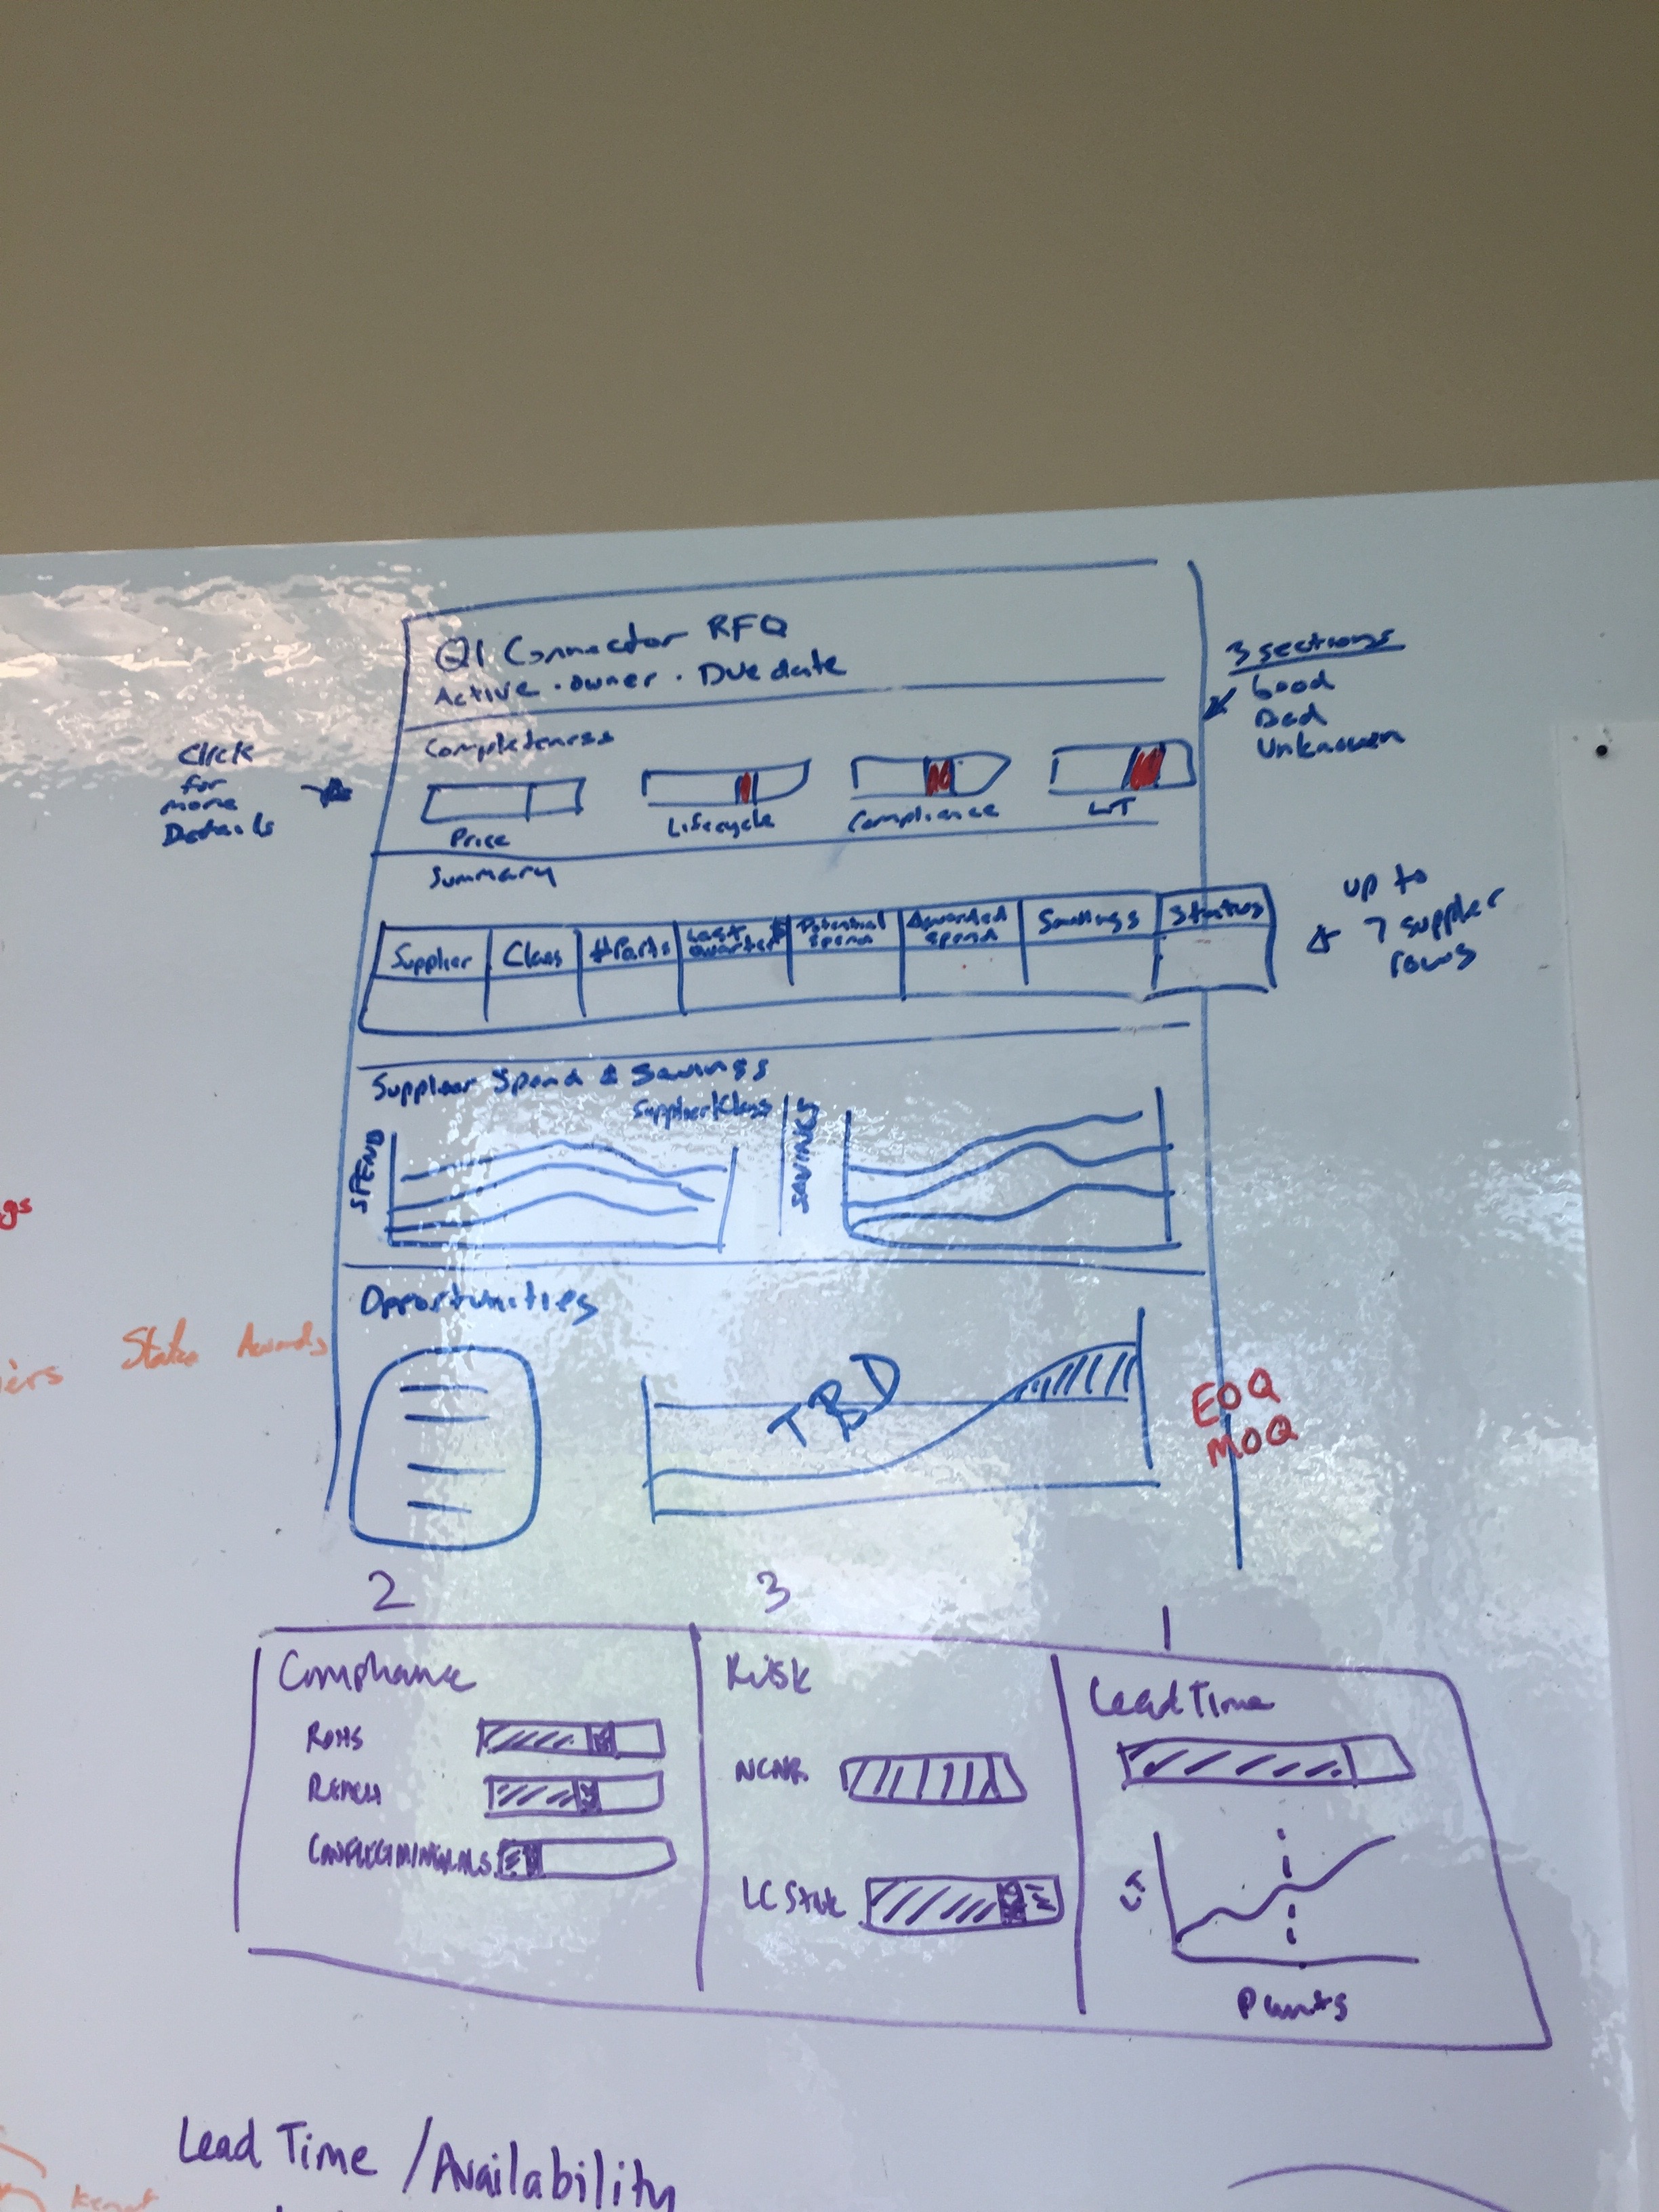 Q1 Connector RFQ
Active · owner · Due date
3 sections
Good
Bad
Unknown
Click
for
more
Details
Completeness
Price
Lifecycle
Compliance
LT
Summary
Supplier
Class
# Parts
Last Quarter $
Potential Spend
Awarded Spend
Savings
Status
up to
7 supplier
rows
Supplier Spend & Savings
Supplier/Class
SPEND
SAVINGS
gs
Opportunities
TBD
EOQ
MOQ
iers States Awards
2
3
1
Compliance
ROHS
REACH
CONFLICT MINERALS
Risk
NCNR
LC State
Lead Time
LT
Lead Time / Availability